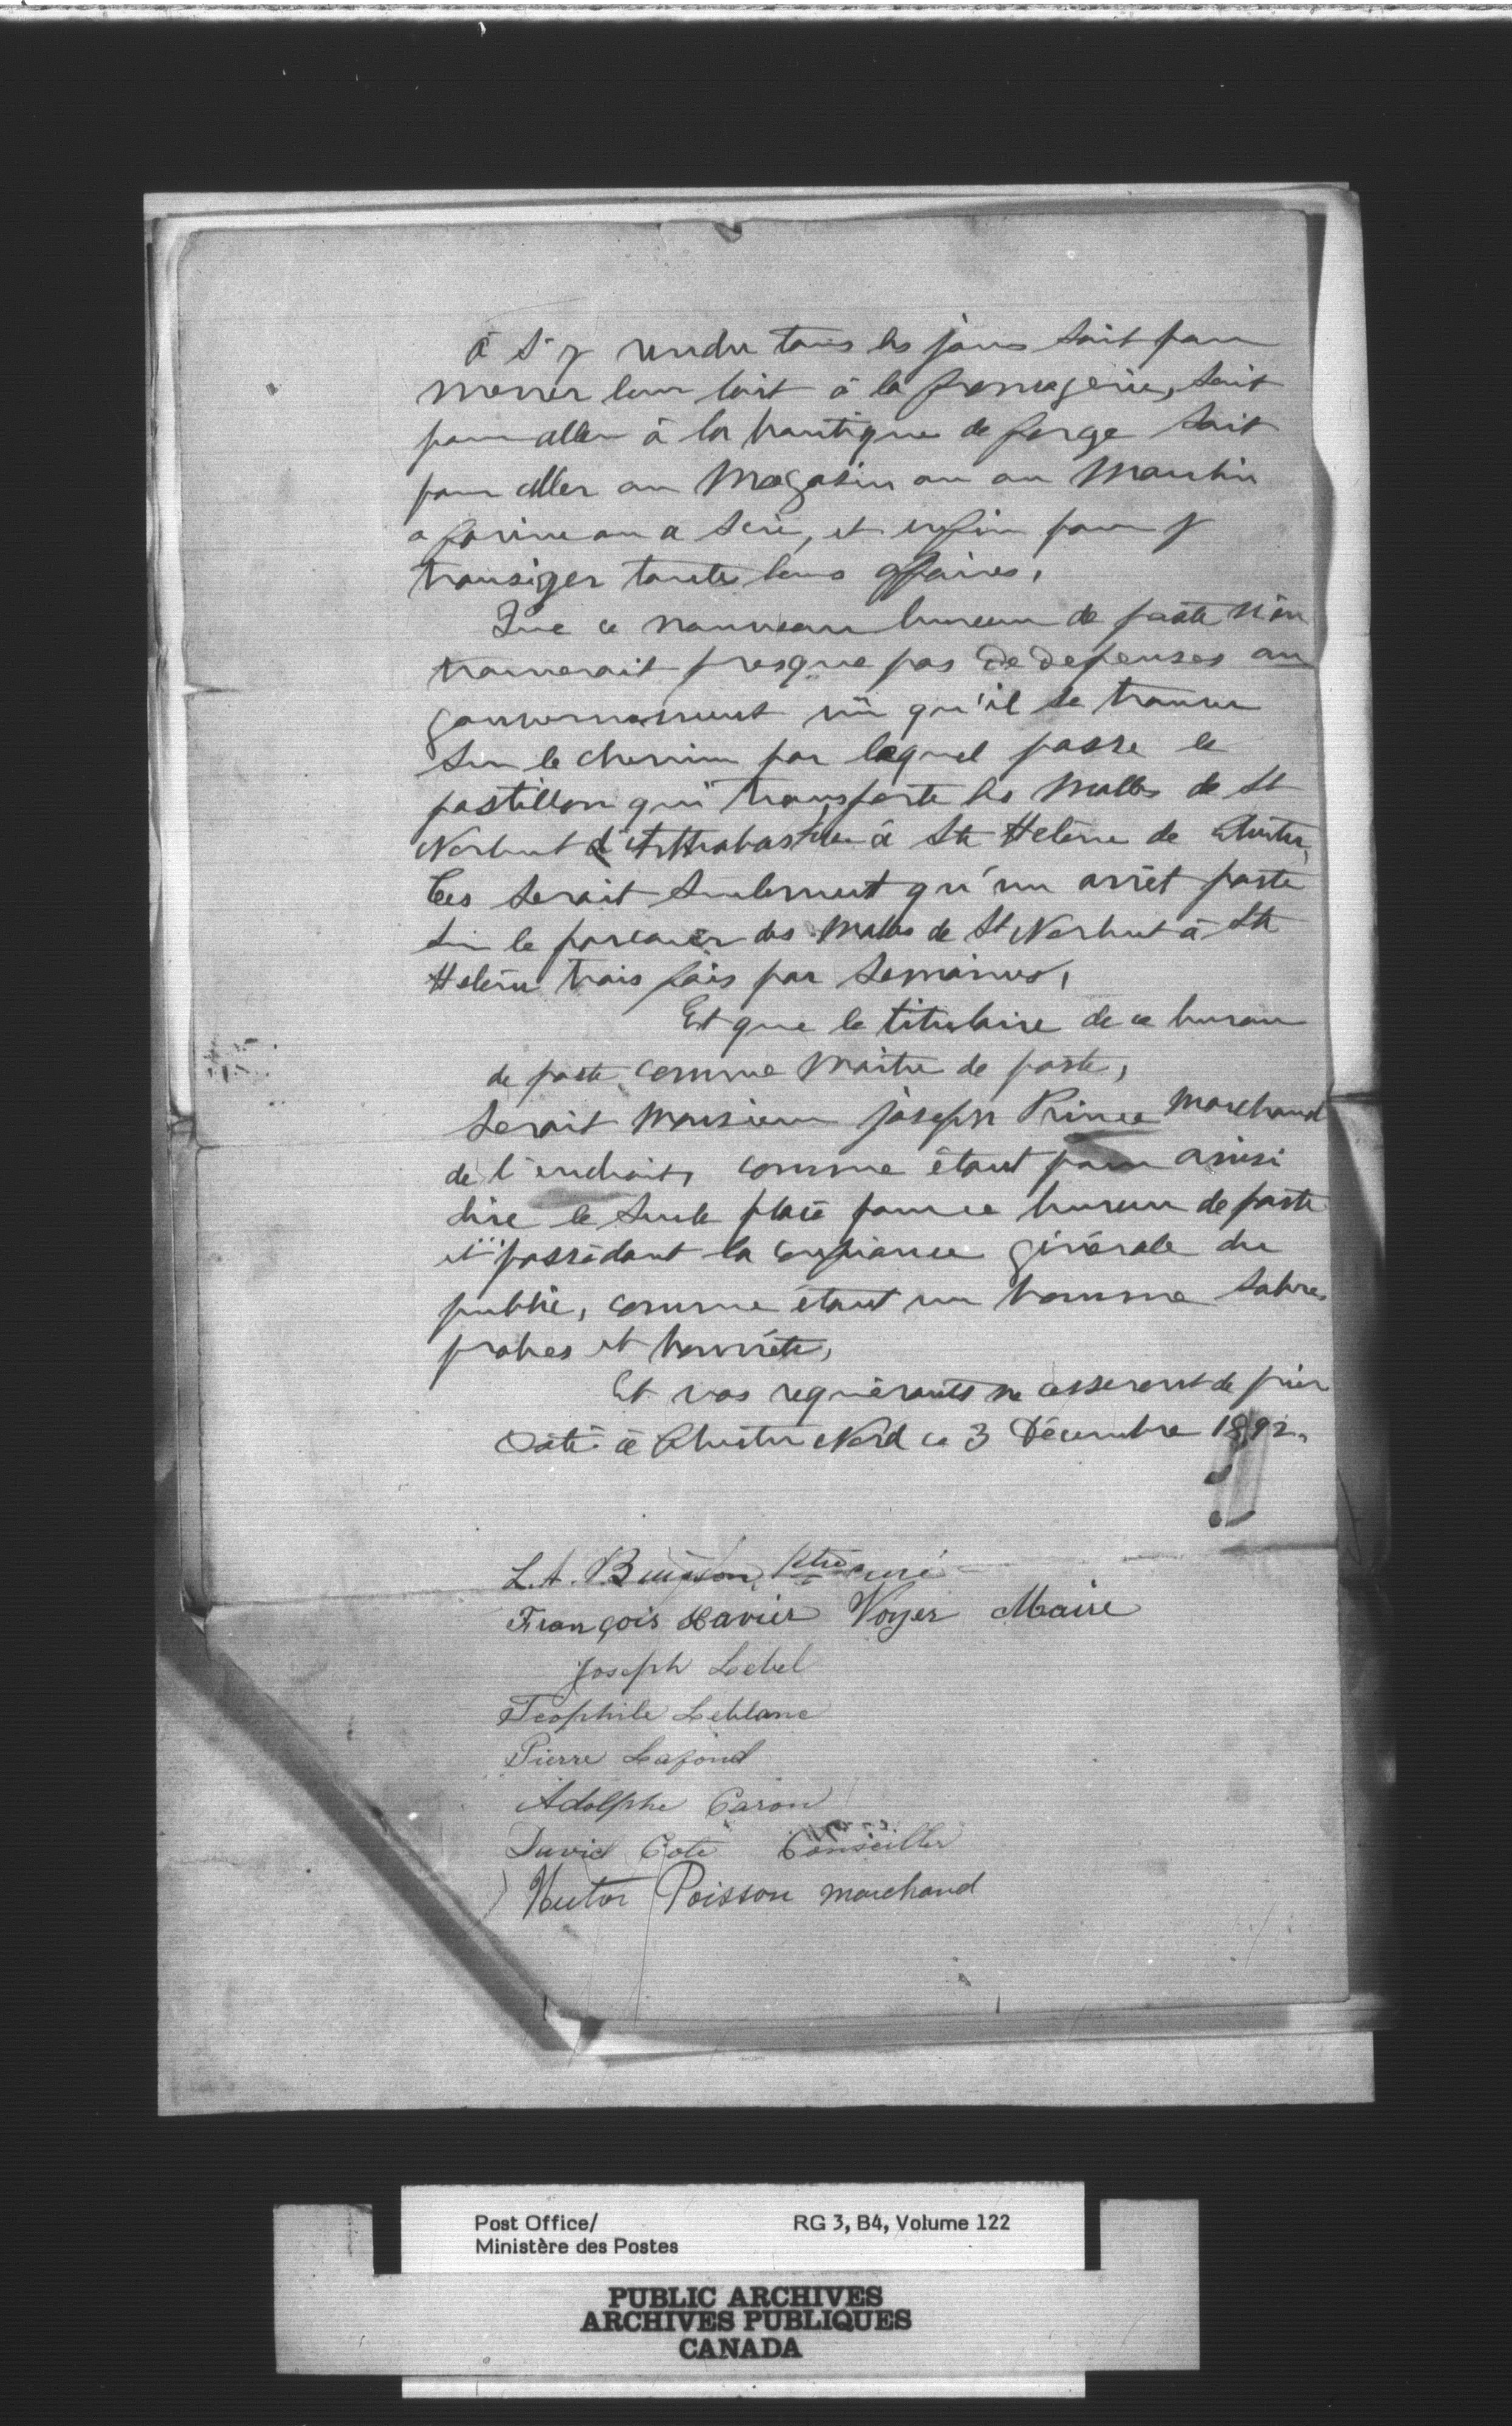 à s'y rendre tous les jours soit pour
mener leur lait à la fromagerie, soit
pour aller à la boutique de forge soit
pour aller au Magasin ou au Moulin
a farine ou a scie, et enfin pour y
transiger toute leurs affaires,
Que ce nouveau bureau de poste n'en
trainerait presque pas de depenses au
gouvernement vû qu'il se trouve
sur le chemin par lequel passe le
postillon qui transporte les Malles de St
Norbert d'Arthabaska à Ste Helène de Chester,
Ces serait seulement qu'un arrêt poste
sur le parcour des Malles de St Norbert à Ste
Helène trois fois par semaines,
Et que le titulaire de ce bureau
de poste comme Maitre de poste,
serait Monsieur joseph Prince Marchand
de l'endroit, comme étant pour ainsi
dire le seule placé pour ce bureau de poste
et possèdant la confiance générale du
public, comme étant un homme sobre,
probes et honnête,
Et vos requèrants ne cesseront de prier
Daté à Chester Nord ce 3 Décembre 1892.
L. A. Buisson, Ptre curé
François Xavier Voyer Maire
Joseph Lebel
Teophile Leblanc
Pierre Lafond
Adolphe Caron
David Cote Conseiller
Hector Poisson marchand
Post Office/ RG 3, B4, Volume 122
Ministère des Postes
PUBLIC ARCHIVES
ARCHIVES PUBLIQUES
CANADA